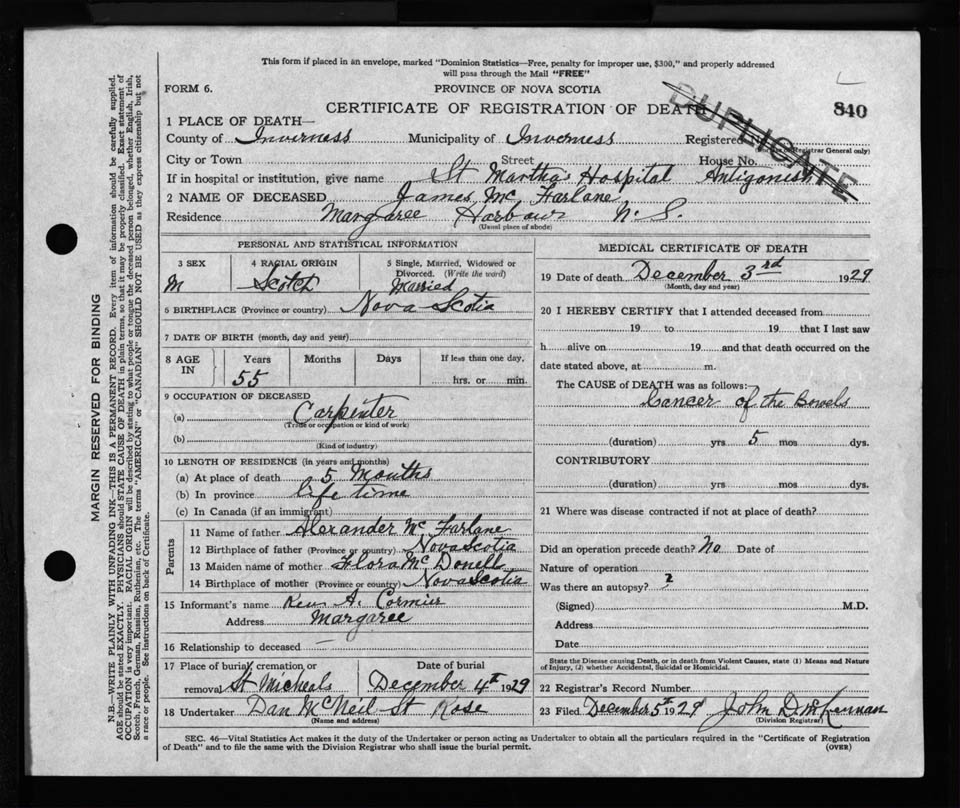 This form if placed in an envelope, marked "Dominion Statistics—Free, penalty for improper use, $300," and properly addressed
will pass through the Mail "FREE"
FORM 6.
PROVINCE OF NOVA SCOTIA
CERTIFICATE OF REGISTRATION OF DEATH
DUPLICATE
840
1 PLACE OF DEATH—
County of Inverness Municipality of Inverness Registered
(Registrar General only)
City or Town Street House No.
If in hospital or institution, give name St Martha's Hospital Antigonish
2 NAME OF DECEASED James Mc Farlane
Residence Margaree Harbour N. S.
(Usual place of abode)
PERSONAL AND STATISTICAL INFORMATION
3 SEX
M
4 RACIAL ORIGIN
Scotch
5 Single, Married, Widowed or
Divorced. (Write the word)
Married
6 BIRTHPLACE (Province or country) Nova Scotia
7 DATE OF BIRTH (month, day and year)
8 AGE IN
Years
55
Months
Days
If less than one day,
hrs. or min.
9 OCCUPATION OF DECEASED
(a) Carpenter
(Trade or occupation or kind of work)
(b)
(Kind of industry)
10 LENGTH OF RESIDENCE (in years and months)
(a) At place of death 5 Months
(b) In province life time
(c) In Canada (if an immigrant)
Parents
11 Name of father Alexander Mc Farlane
12 Birthplace of father (Province or country) Nova Scotia
13 Maiden name of mother Flora Mc Donell
14 Birthplace of mother (Province or country) Nova Scotia
15 Informant's name Rev. A. Cormier
Address Margaree
16 Relationship to deceased
17 Place of burial, cremation or
removal St Micheals
Date of burial
December 4th 1929
18 Undertaker Dan McNeil St Rose
(Name and address)
MEDICAL CERTIFICATE OF DEATH
19 Date of death December 3rd 1929
(Month, day and year)
20 I HEREBY CERTIFY that I attended deceased from
19 to 19 that I last saw
h alive on 19 and that death occurred on the
date stated above, at m.
The CAUSE of DEATH was as follows:
Cancer of the Bowels
(duration) yrs 5 mos dys.
CONTRIBUTORY
(duration) yrs. mos. dys.
21 Where was disease contracted if not at place of death?
Did an operation precede death? No Date of
Nature of operation
Was there an autopsy? ?
(Signed) M.D.
Address
Date
State the Disease causing Death, or in death from Violent Causes, state (1) Means and Nature
of Injury, (2) whether Accidental, Suicidal or Homicidal.
22 Registrar's Record Number
23 Filed December 5th 1929 John D. McKennan
(Division Registrar)
SEC. 46—Vital Statistics Act makes it the duty of the Undertaker or person acting as Undertaker to obtain all the particulars required in the "Certificate of Registration
of Death" and to file the same with the Division Registrar who shall issue the burial permit.
(OVER)
MARGIN RESERVED FOR BINDING
N.B.—WRITE PLAINLY WITH UNFADING INK—THIS IS A PERMANENT RECORD. Every item of information should be carefully supplied.
AGE should be stated EXACTLY. PHYSICIANS should STATE CAUSE OF DEATH in plain terms, so that it may be properly classified. Exact statement of
OCCUPATION is very important. RACIAL ORIGIN will be described by stating to what people or tongue the deceased person belonged, whether English, Irish,
Scotch, French, German, Russian, Ruthenian, etc. The terms "AMERICAN" or "CANADIAN" SHOULD NOT BE USED as they express citizenship but not
a race or people. See instructions on back of Certificate.